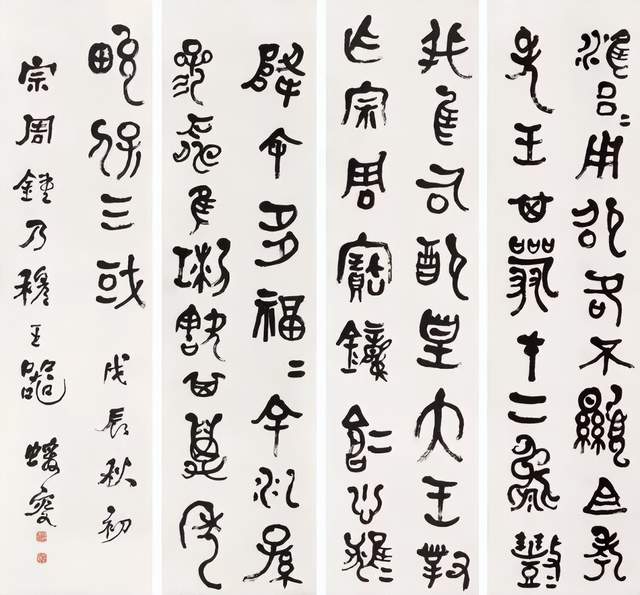 雝〓用卲各不顯且考
先王其嚴才二㲋豐
我隹司配皇天王對
乍宗周寶鐘倉〓悤𨿳
降余多福〓余順孫
參壽隹琍㝬其萬年
畯保三或 戊辰秋初
宗周鐘乃穆王器 蝯叟